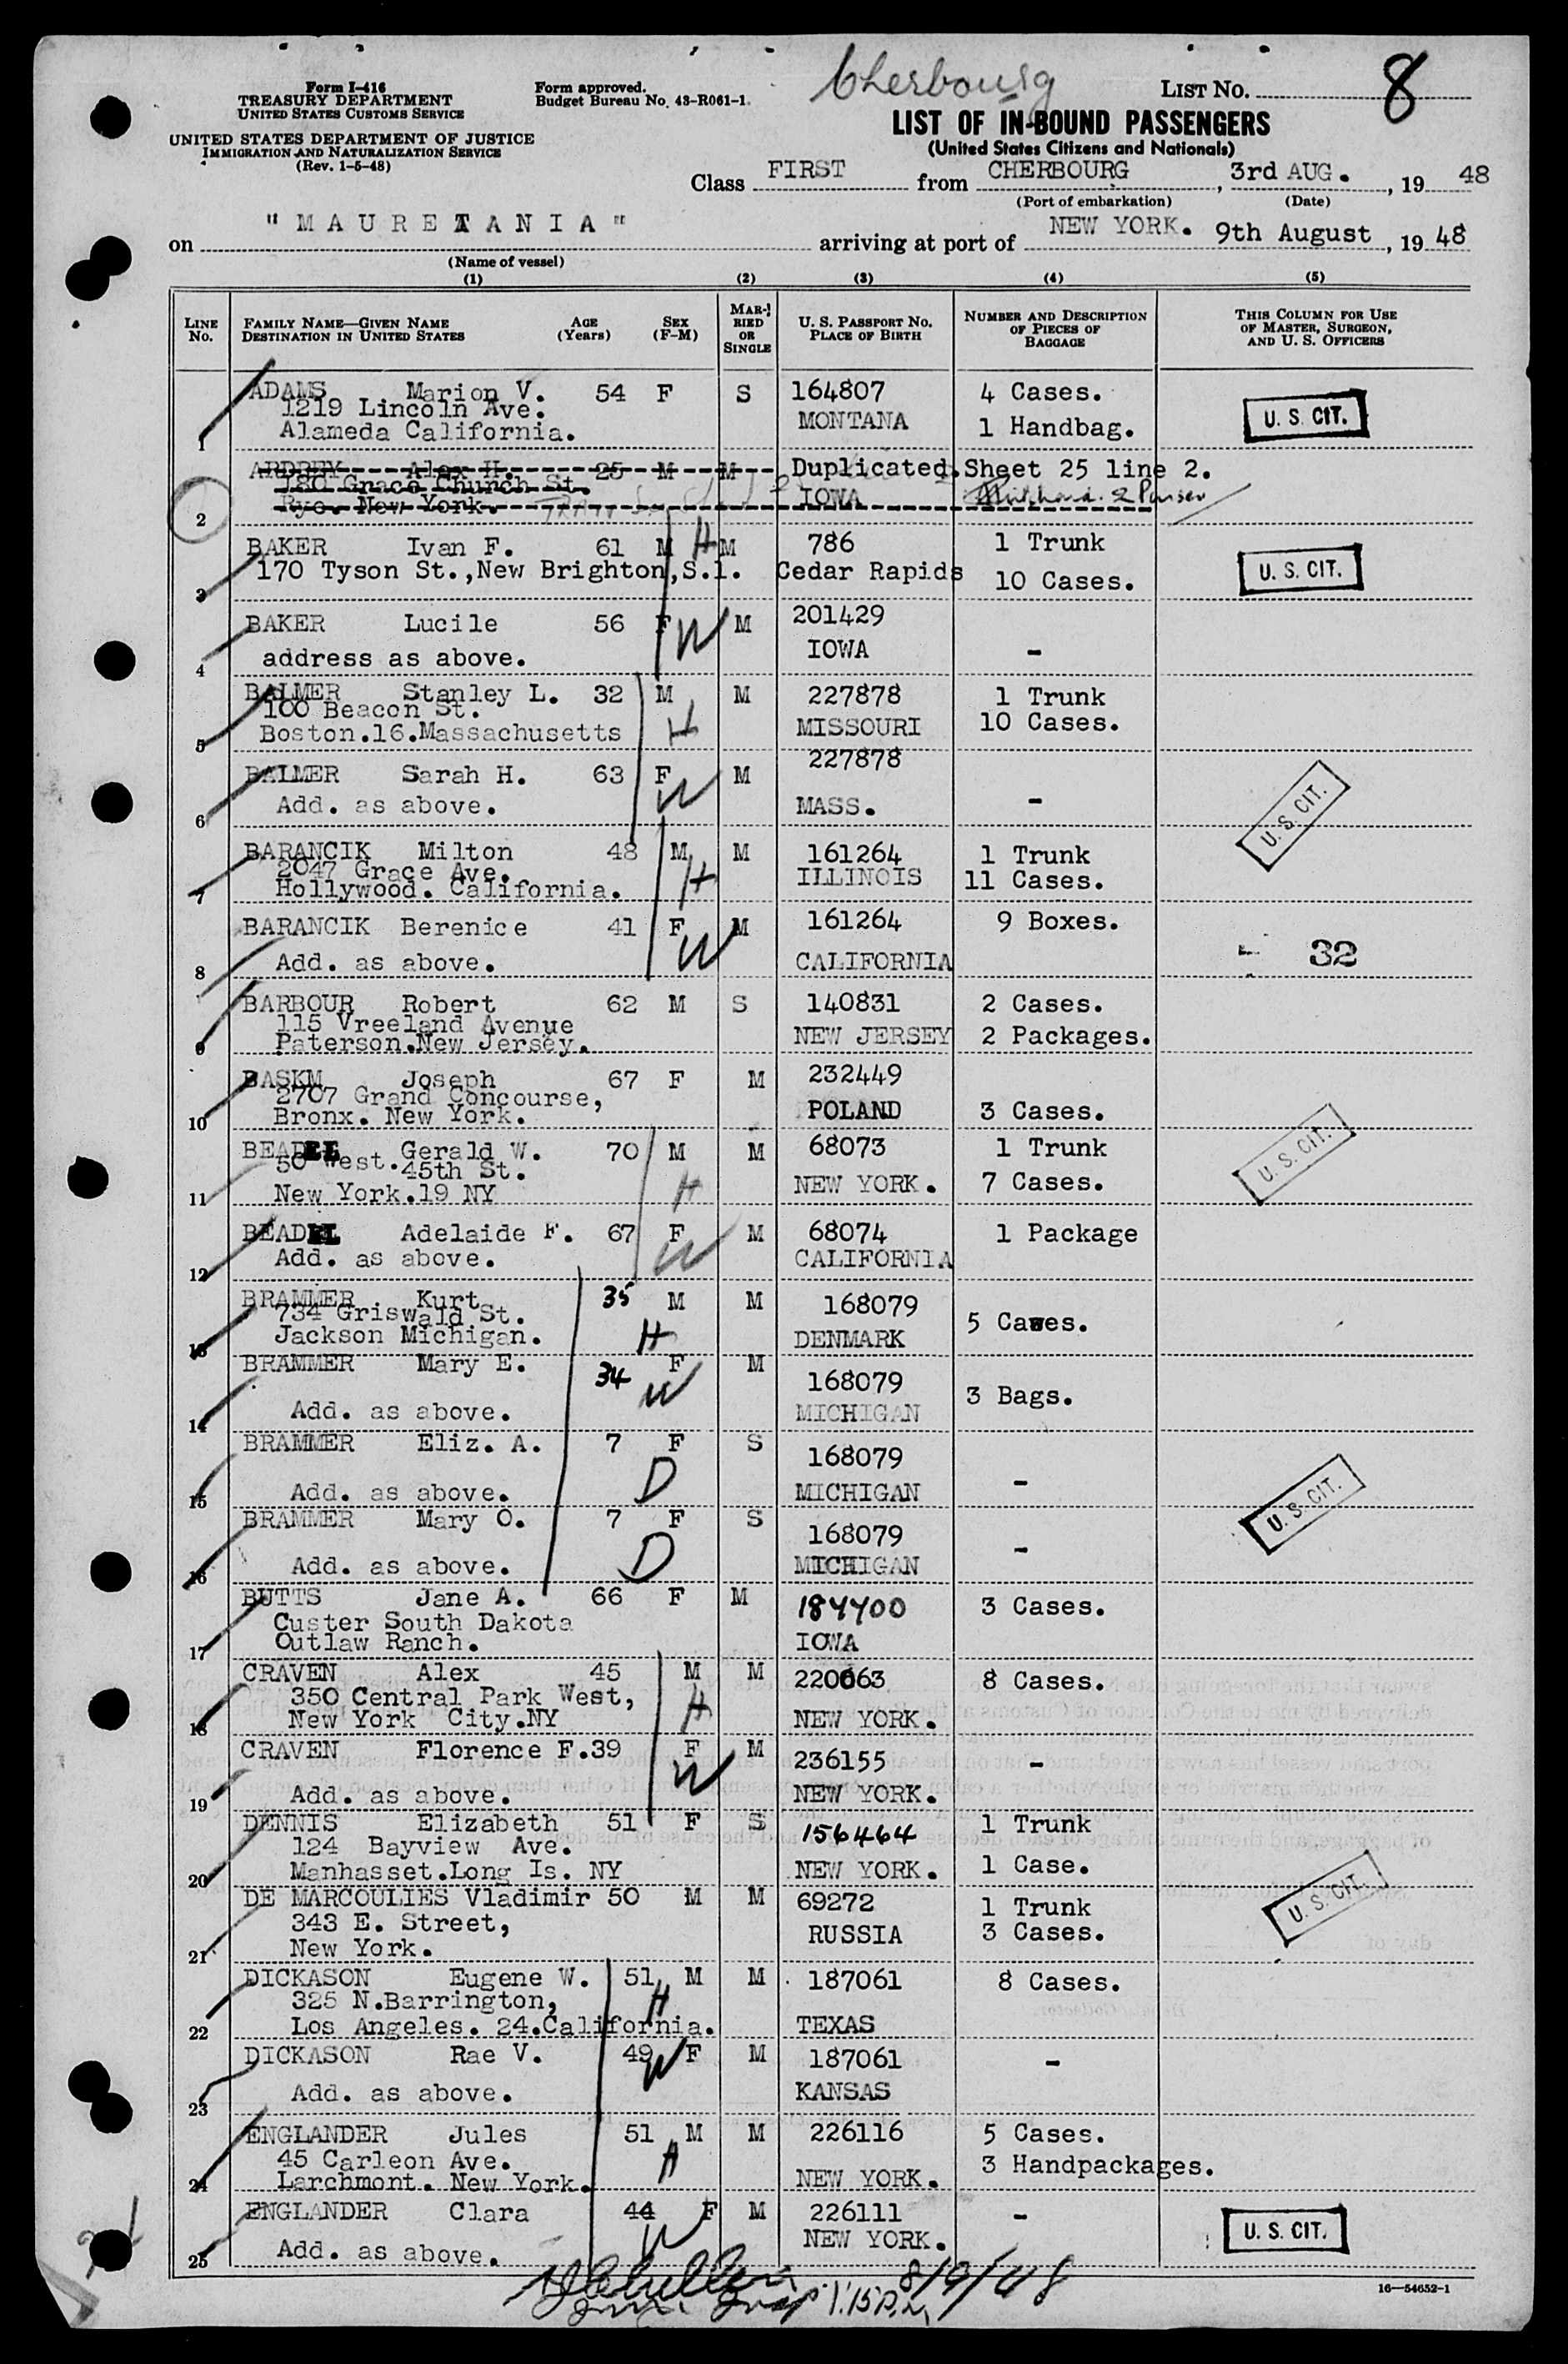 Form I-416
TREASURY DEPARTMENT
UNITED STATES CUSTOMS SERVICE
UNITED STATES DEPARTMENT OF JUSTICE
IMMIGRATION AND NATURALIZATION SERVICE
(Rev. 1-5-48)
Form approved.
Budget Bureau No. 43-R061-1.
Cherbourg
LIST No. 8
LIST OF IN-BOUND PASSENGERS
(United States Citizens and Nationals)
Class FIRST from CHERBOURG, 3rd AUG., 19 48
(Port of embarkation) (Date)
on "MAURETANIA" arriving at port of NEW YORK. 9th August, 19 48
(Name of vessel)
(1) (2) (3) (4) (5)
LINE No.
FAMILY NAME—GIVEN NAME DESTINATION IN UNITED STATES
AGE (Years)
SEX (F-M)
MARRIED OR SINGLE
U. S. PASSPORT No. PLACE OF BIRTH
NUMBER AND DESCRIPTION OF PIECES OF BAGGAGE
THIS COLUMN FOR USE OF MASTER, SURGEON, AND U. S. OFFICERS
ADAMS Marion V. 54 F S 164807 4 Cases.
1219 Lincoln Ave.
1 Alameda California. MONTANA 1 Handbag. U. S. CIT.
ARDREY Alex H. 25 M M Duplicated. Sheet 25 line 2.
180 Grace Church St.
2 Rye. New York. IOWA
BAKER Ivan F. 61 M H M 786 1 Trunk
3 170 Tyson St.,New Brighton,S.l. Cedar Rapids 10 Cases. U. S. CIT.
BAKER Lucile 56 F W M 201429
4 address as above. IOWA -
BALMER Stanley L. 32 M M 227878 1 Trunk
100 Beacon St.
5 Boston.16.Massachusetts H MISSOURI 10 Cases.
BALMER Sarah H. 63 F M 227878
6 Add. as above. W MASS. - U. S. CIT.
BARANCIK Milton 48 M M 161264 1 Trunk
2047 Grace Ave.
7 Hollywood. California. H ILLINOIS 11 Cases.
BARANCIK Berenice 41 F M 161264 9 Boxes.
8 Add. as above. W CALIFORNIA 32
BARBOUR Robert 62 M S 140831 2 Cases.
115 Vreeland Avenue
9 Paterson.New Jersey. NEW JERSEY 2 Packages.
BASKM Joseph 67 F M 232449
2707 Grand Concourse,
10 Bronx. New York. POLAND 3 Cases.
BEADEL Gerald W. 70 M M 68073 1 Trunk
50 West.45th St.
11 New York.19 NY H NEW YORK. 7 Cases. U. S. CIT.
BEADEL Adelaide F. 67 F M 68074 1 Package
12 Add. as above. W CALIFORNIA
BRAMMER Kurt 35 M M 168079
734 Griswald St.
13 Jackson Michigan. H DENMARK 5 Cases.
BRAMMER Mary E. 34 F M 168079 3 Bags.
14 Add. as above. W MICHIGAN
BRAMMER Eliz. A. 7 F S 168079
15 Add. as above. D MICHIGAN - U. S. CIT.
BRAMMER Mary O. 7 F S 168079
16 Add. as above. D MICHIGAN -
BUTTS Jane A. 66 F M 184400 3 Cases.
Custer South Dakota
17 Outlaw Ranch. IOWA
CRAVEN Alex 45 M M 220063 8 Cases.
350 Central Park West,
18 New York City.NY H NEW YORK.
CRAVEN Florence F.39 F M 236155 -
19 Add. as above. W NEW YORK.
DENNIS Elizabeth 51 F S 156464 1 Trunk
124 Bayview Ave.
20 Manhasset.Long Is. NY NEW YORK. 1 Case.
DE MARCOULIES Vladimir 50 M M 69272 1 Trunk U. S. CIT.
343 E. Street, RUSSIA 3 Cases.
21 New York.
DICKASON Eugene W. 51 M M 187061 8 Cases.
325 N.Barrington, H
22 Los Angeles. 24.California. TEXAS
DICKASON Rae V. 49 W F M 187061 -
23 Add. as above. KANSAS
ENGLANDER Jules 51 M M 226116 5 Cases.
45 Carleon Ave. H 3 Handpackages.
24 Larchmont. New York. NEW YORK.
ENGLANDER Clara 44 F M 226111 -
25 Add. as above. W NEW YORK. U. S. CIT.
8/9/48
1:15 P.M
16—54652-1